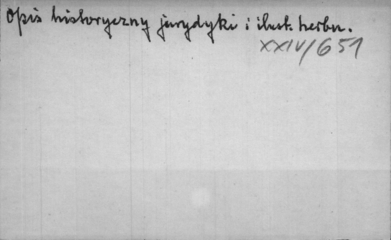 Opis historyczny jurydyki i ilustr. herbu.
XXIV/651